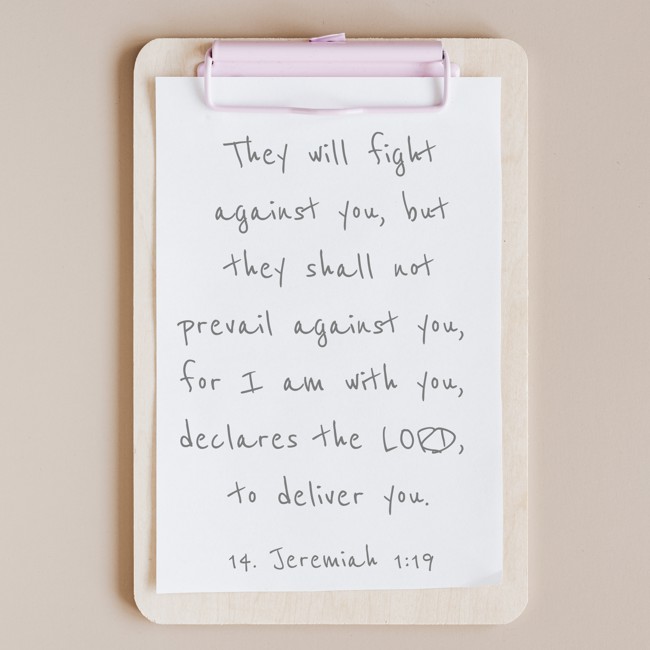 They will fight
against you, but
they shall not
prevail against you,
for I am with you,
declares the LORD,
to deliver you.
14. Jeremiah 1:19